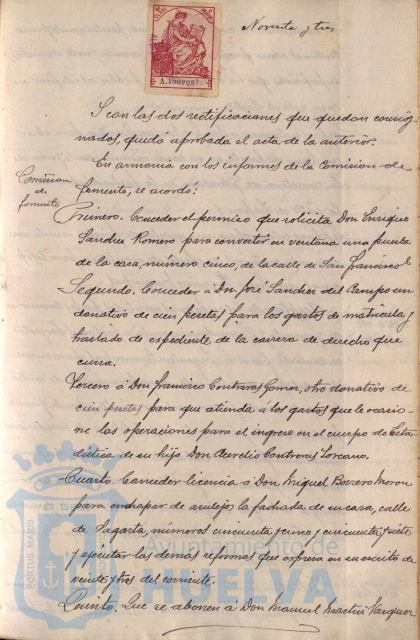 Noventa y tres
A.1,007,037
Y con las dos rectificaciones que quedan consig-
nadas, quedó aprobada el acta de la anterior.
En armonia con los informes de la Comision de
fomento, se acordó:
Comision
de
fomento
Primero. Conceder el permiso que solicita Don Enrique
Sandre Romero para convertir en ventana una puerta
de la casa, número cinco, de la calle de San Francisco.
Segundo. Conceder á Don José Sanchez del Campo un
donativo de cien pesetas para los gastos de matricula y
traslado de expediente de la carrera de derecho que
cursa.
Tercero á Don Francisco Contreras Gomez, otro donativo de
cien pesetas para que atienda á los gastos que le ocasio-
ne las operaciones para el ingreso en el cuerpo de Esta-
distica de su hijo Don Aurelio Contreras Lozcano.
Cuarto. Conceder licencia á Don Miguel Borrero Moron
para enchapar de azulejo la fachada de su casa, calle
de Sagasta, números cincuenta y cinco y cincuenta y siete
y ejecutar las demás reformas que expresa en su escrito de
veinte y tres del corriente.
Quinto. Que se abonen á Don Manuel Martin Vazquez
PORTUS MARIS
Ayuntamiento de
HUELVA